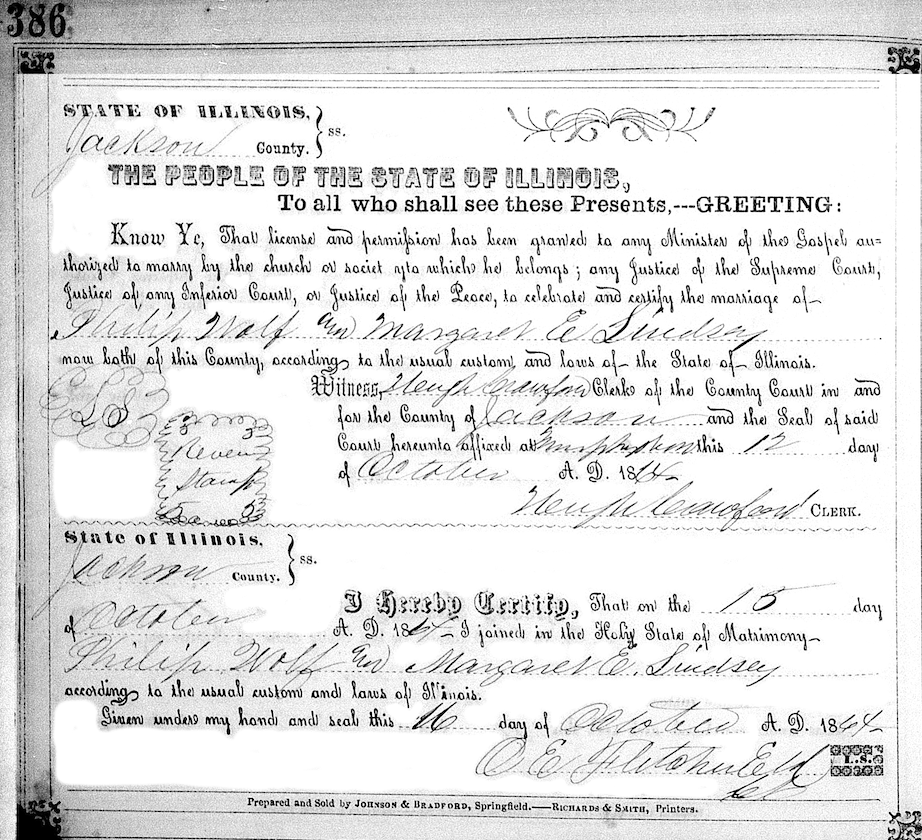 386
STATE OF ILLINOIS,
Jackson County. } ss.
THE PEOPLE OF THE STATE OF ILLINOIS,
To all who shall see these Presents,---GREETING:
Know Ye, That license and permission has been granted to any Minister of the Gospel au=
thorized to marry by the church or societ yto which he belongs; any Justice of the Supreme Court,
Justice of any Inferior Court, or Justice of the Peace, to celebrate and certify the marriage of
Philip Wolf and Margaret E Lindsey
now both of this County, according to the usual custom and laws of the State of Illinois.
Witness, Hugh Crawford Clerk of the County Court in and
for the County of Jackson and the Seal of said
Court hereunto affixed at Murphysboro this 12 day
of October A. D. 1864
LS
5 5
Revenue
Stamp
5 5
Hugh Crawford CLERK.
State of Illinois,
Jackson County. } ss.
I Hereby Certify, That on the 15 day
of October A. D. 1864 I joined in the Holy State of Matrimony
Philip Wolf and Margaret E. Lindsey
according to the usual custom and laws of Illinois.
Given under my hand and seal this 16 day of October A. D. 1864
C E Fletcher L.S.
Prepared and Sold by JOHNSON & BRADFORD, Springfield.—RICHARDS & SMITH, Printers.